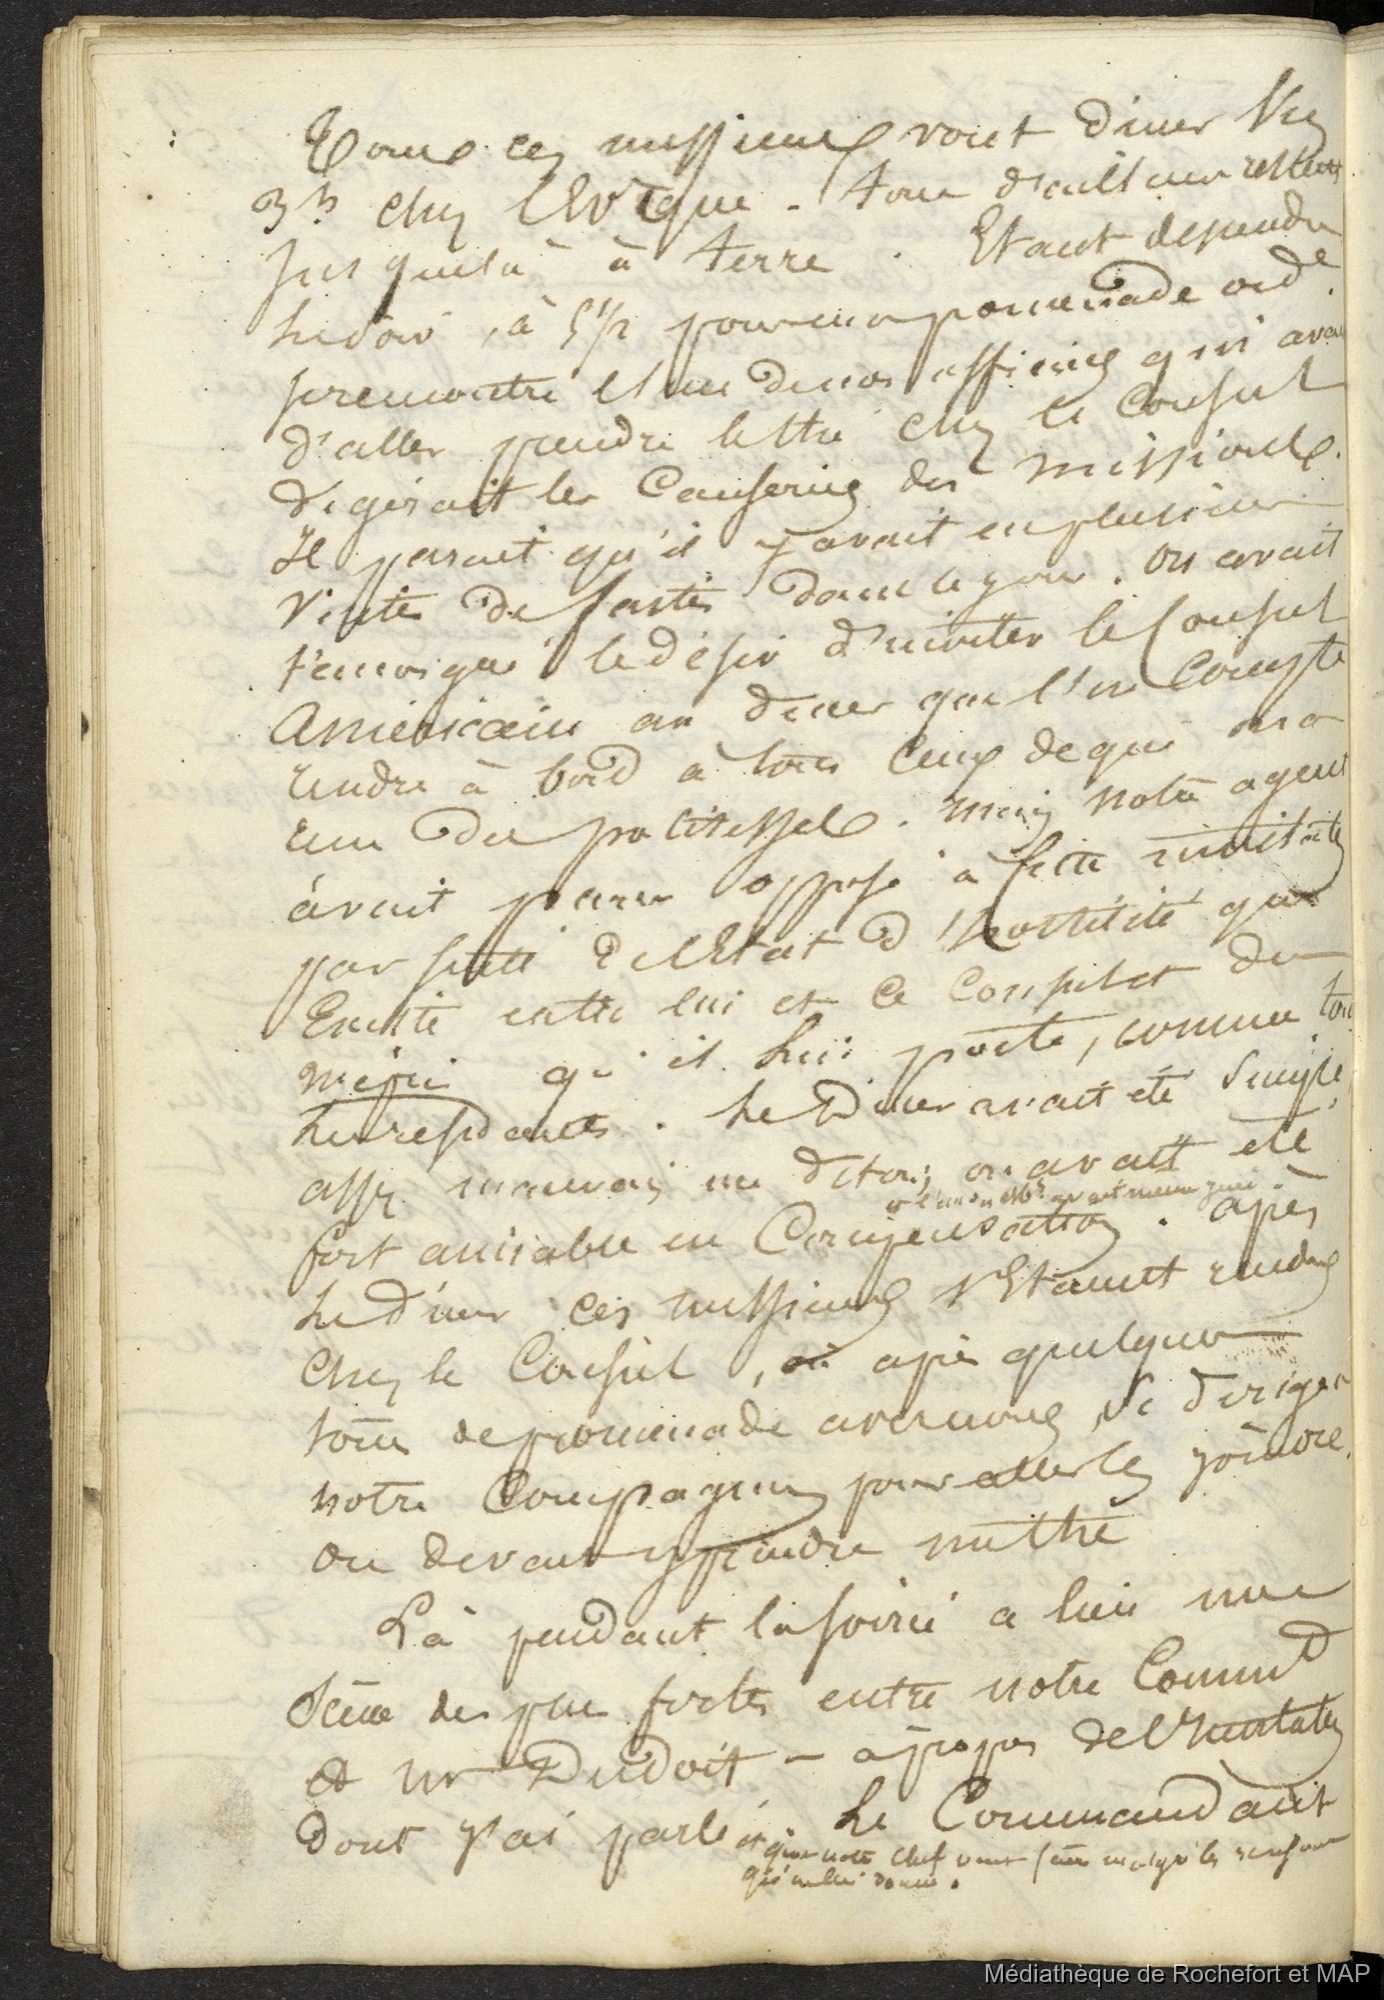 Tous ces messieurs vont diner vers
3h chez l'Evêque. tous d'ailleurs restent
jusques là à terre. Etant descendu
le soir, à 5 1/2 pour ma promenade ord.e
je rencontre l'un de nos officiers qui avant
d'aller prendre le thé chez le Consul
digérait les Causeries des missions.
Il parait qu'il y avait eu plusieurs
visites de faites dans le jour. on avait
témoigné le désir d'inviter le Consul
Américain au diner que l'on compte
rendre à bord à tous ceux de qui on a
reçu des politesses. mais notre agent
avait paru opposé à cette invitation
par suite de l'Etat d'hostilité qui
Existe entre lui et ce Consul et du
mépris qu'il lui porte, comme tous
les résidents. Le Diner avait été simple,
assez mauvais me dit on; on avait été
fort aimable en Compensation. après
le diner ces messieurs s'Etaient rendus
chez le Consul, où après quelques
tours de promenade avec nous, se dirigea
notre Compagnon pour aller les joindre.
on devait y prendre le thé
Là pendant la soirée a lieu une
scène des plus fortes entre notre Commd
et mr Dudoit – à propos de l'invitation
dont j'ai parlé. Le Commandant
et que notre chef veut faire malgré les
qu'on lui donne.